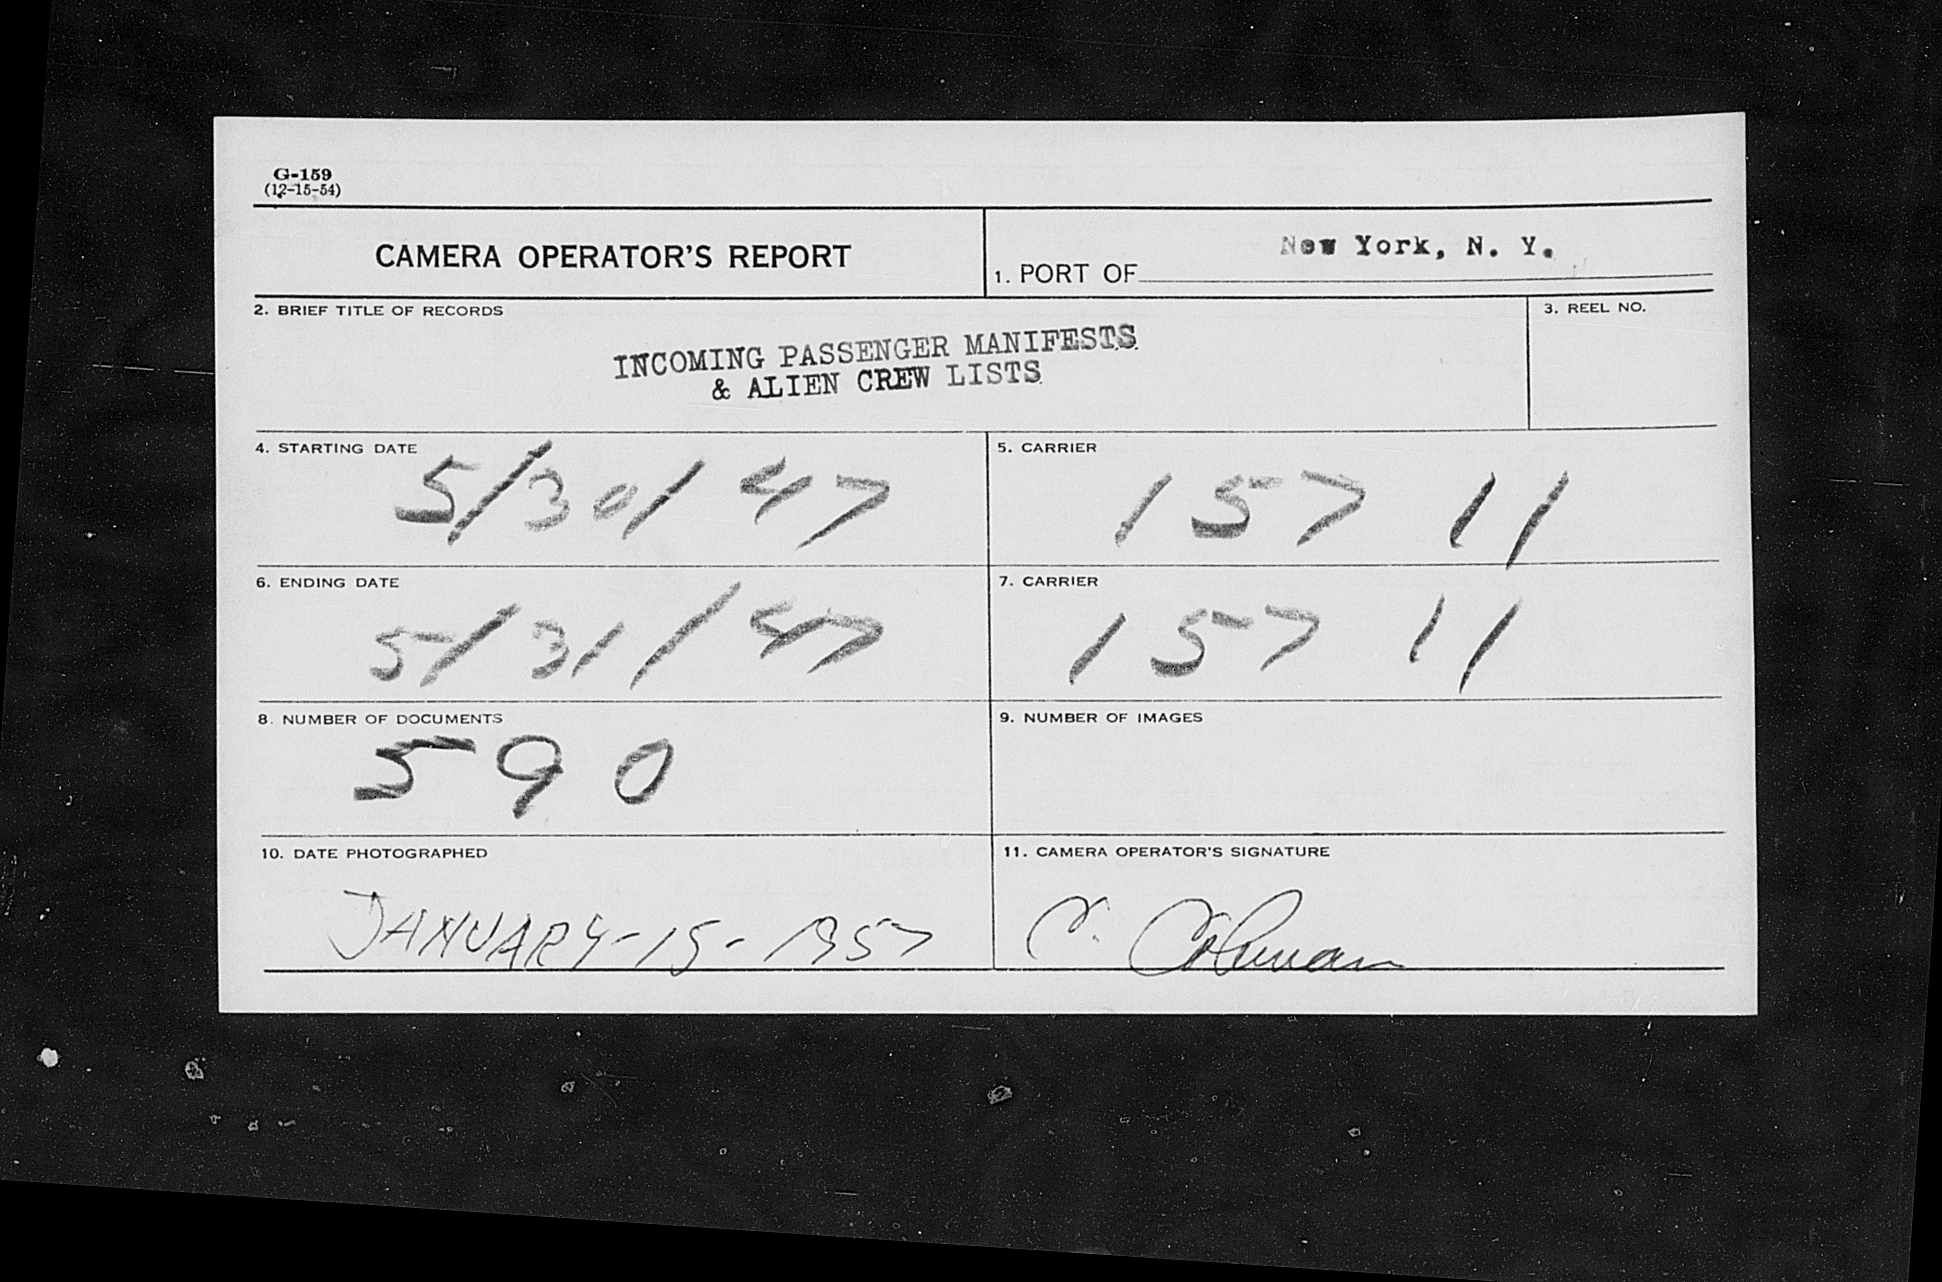 G-159
(12-15-54)
CAMERA OPERATOR'S REPORT
1. PORT OF New York, N. Y.
2. BRIEF TITLE OF RECORDS
3. REEL NO.
INCOMING PASSENGER MANIFESTS
& ALIEN CREW LISTS
4. STARTING DATE
5/30/47
5. CARRIER
157 11
6. ENDING DATE
5/31/47
7. CARRIER
157 11
8. NUMBER OF DOCUMENTS
590
9. NUMBER OF IMAGES
10. DATE PHOTOGRAPHED
JANUARY-15-1957
11. CAMERA OPERATOR'S SIGNATURE
C. Coleman